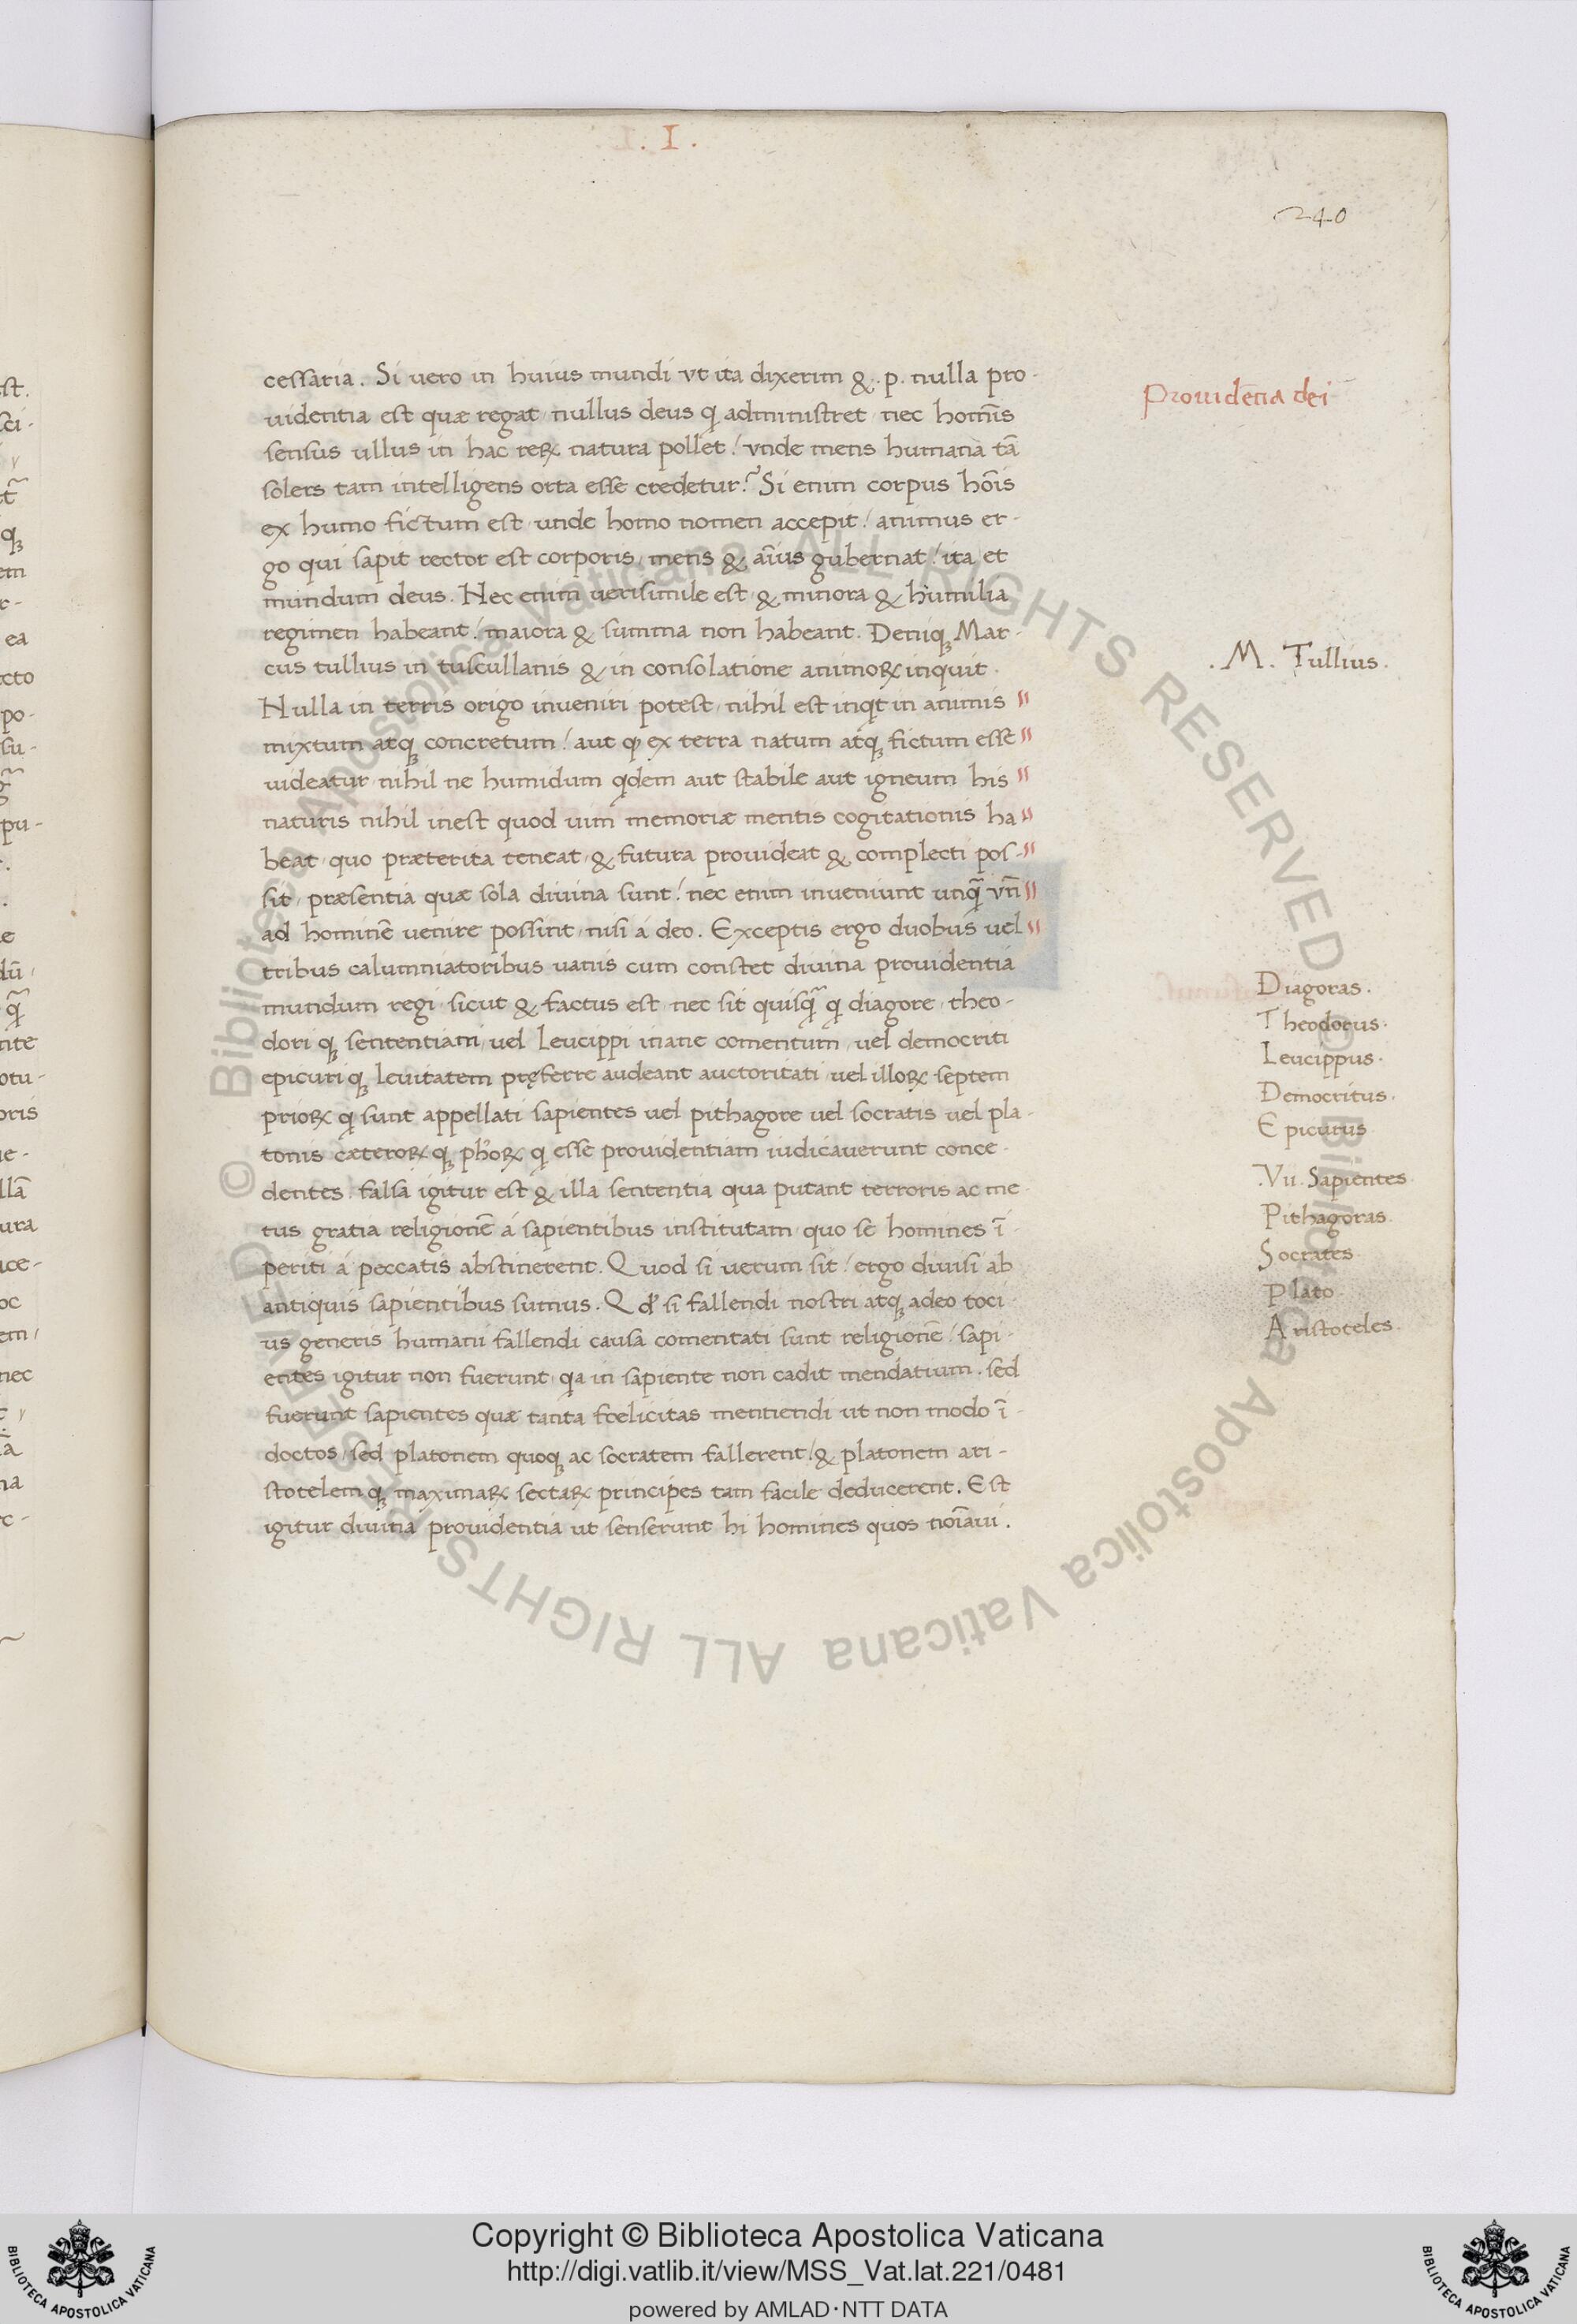 . I .
240
cessaria. Si uero in huius mundi vt ita dixerim & .p. nulla pro-
uidentia est quæ regat nullus deus qͥ administret nec hoı̄nis
sensus ullus in hac reꝝ natura pollet / vnde mens humana tā
solers tam intelligens orta esse credetur? Si enim corpus hōis
ex humo fictum est unde homo nomen accepit / animus er-
go qui sapit rector est corporis, mens & aı̄us gubernat / ita et
mundum deus. Nec enim uerisimile est & minora & humilia
regimen habeant / maiora & summa non habeant. Deniqꝫ Mar-
cus tullius in tuscullanis & in consolatione animoꝝ inquit.
Nulla in terris origo inueniri potest, nihil est inqͥt in animis "
mixtum atqꝫ concretum / aut ꝙ ex terra natum atqꝫ fictum esse "
uideatur nihil ne humidum qͥdem aut stabile aut igneum his "
naturis nihil inest quod uim memoriæ mentis cogitationis ha "
beat, quo præterita teneat, & futura prouideat & complecti pos- "
sit, præsentia quæ sola diuina sunt / nec enim inueniunt unqꝫ̄ vn̄ "
ad hominē uenire possint, nisi á deo. Exceptis ergo duobus uel "
tribus calumniatoribus uanis cum constet diuina prouidentia
mundum regi, sicut & factus est, nec sit quisqꝫ̄ qͥ diagore, theo-
dori qꝫ sententiam, uel Leucippi inane comentum, uel democriti
epicuri qꝫ leuitatem pręferre audeant auctoritati, uel illoꝝ septem
prioꝝ qͥ sunt appellati sapientes uel pithagore uel socratis uel pla-
tonis cæteroꝝ qꝫ ph̄oꝝ qͥ esse prouidentiam iudicauerunt conce-
dentes. falsa igitur est & illa sententia qua putant terroris ac me-
tus gratia religionē á sapientibus institutam, quo se homines ī-
periti á peccatis abstinerent. Quod si uerum sit / ergo diuisi ab
antiquis sapientibus sumus. Qđ si fallendi nostri atqꝫ adeo toci-
us generis humani fallendi causa comentati sunt religionē / sapi-
entes igitur non fuerunt, qa in sapiente non cadit mendatium. sed
fuerunt sapientes quæ tanta fœlicitas mentiendi ut non modo ī-
doctos, sed platonem quoqꝫ ac socratem fallerent / & platonem ari-
stotelem qꝫ maximaꝝ sectaꝝ principes tam facile deducerent. Est
igitur diuina prouidentia ut senserunt hi homines quos noı̄aui.
Prouidēna dei
.M. Tullius.
Diagoras.
Theodorus.
Leucippus.
Democritus.
Epicurus
.Vii. Sapientes
Pithagoras.
Socrates.
Plato
Aristoteles.
© Biblioteca Apostolica Vaticana ALL RIGHTS RESERVED © Biblioteca Apostolica Vaticana ALL RIGHTS RESERVED
Copyright © Biblioteca Apostolica Vaticana
http://digi.vatlib.it/view/MSS_Vat.lat.221/0481
powered by AMLAD·NTT DATA
BIBLIOTECA APOSTOLICA VATICANA
BIBLIOTECA APOSTOLICA VATICANA